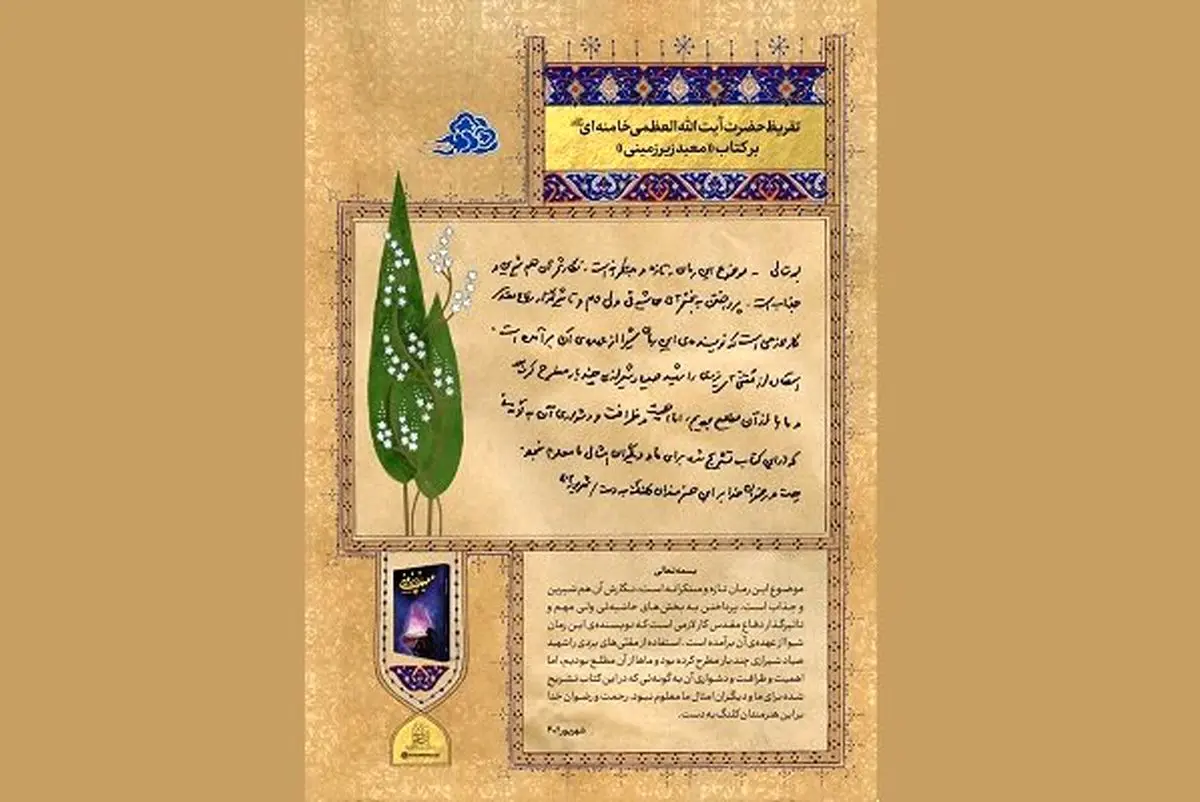 تقریظ حضرت آیت الله العظمی خامنه‌ای
بر کتاب «معبد زیرزمینی»
بسمه تعالی - موضوع این رمان، تازه و مبتکرانه است. نگارش آن هم شیرین و
جذاب است. پرداختن به بخشهای حاشیه‌ئی ولی مهم و تأثیرگذار دفاع مقدس
کار لازمی است که نویسنده‌ی این رمان شیوا از عهده‌ی آن برآمده است.
استفاده از مقنّی‌های یزدی را شهید صیاد شیرازی چند بار مطرح کرده بود
و ماها از آن مطلع بودیم، اما اهمیت و ظرافت و دشواری آن به گونه‌ئی
که در این کتاب تشریح شده برای ما و دیگران امثال ما معلوم نبود.
رحمت و رضوان خدا بر این هنرمندان کلنگ به دست / شهریور
بسمه‌تعالی
موضوع این رمان تازه و مبتکرانه است، نگارش آن هم شیرین
و جذاب است. پرداختن به بخش‌های حاشیه‌ئی ولی مهم و
تاثیرگذار دفاع مقدس کار لازمی است که نویسنده‌ی این رمان
شیوا از عهده‌ی آن برآمده است. استفاده از مقنّی‌های یزدی را شهید
صیاد شیرازی چند بار مطرح کرده بود و ماها از آن مطلع بودیم، اما
اهمیت و ظرافت و دشواری آن به گونه‌ئی که در این کتاب تشریح
شده برای ما و دیگران امثال ما معلوم نبود. رحمت و رضوان خدا
بر این هنرمندان کلنگ به دست.
شهریور ۴۰۲